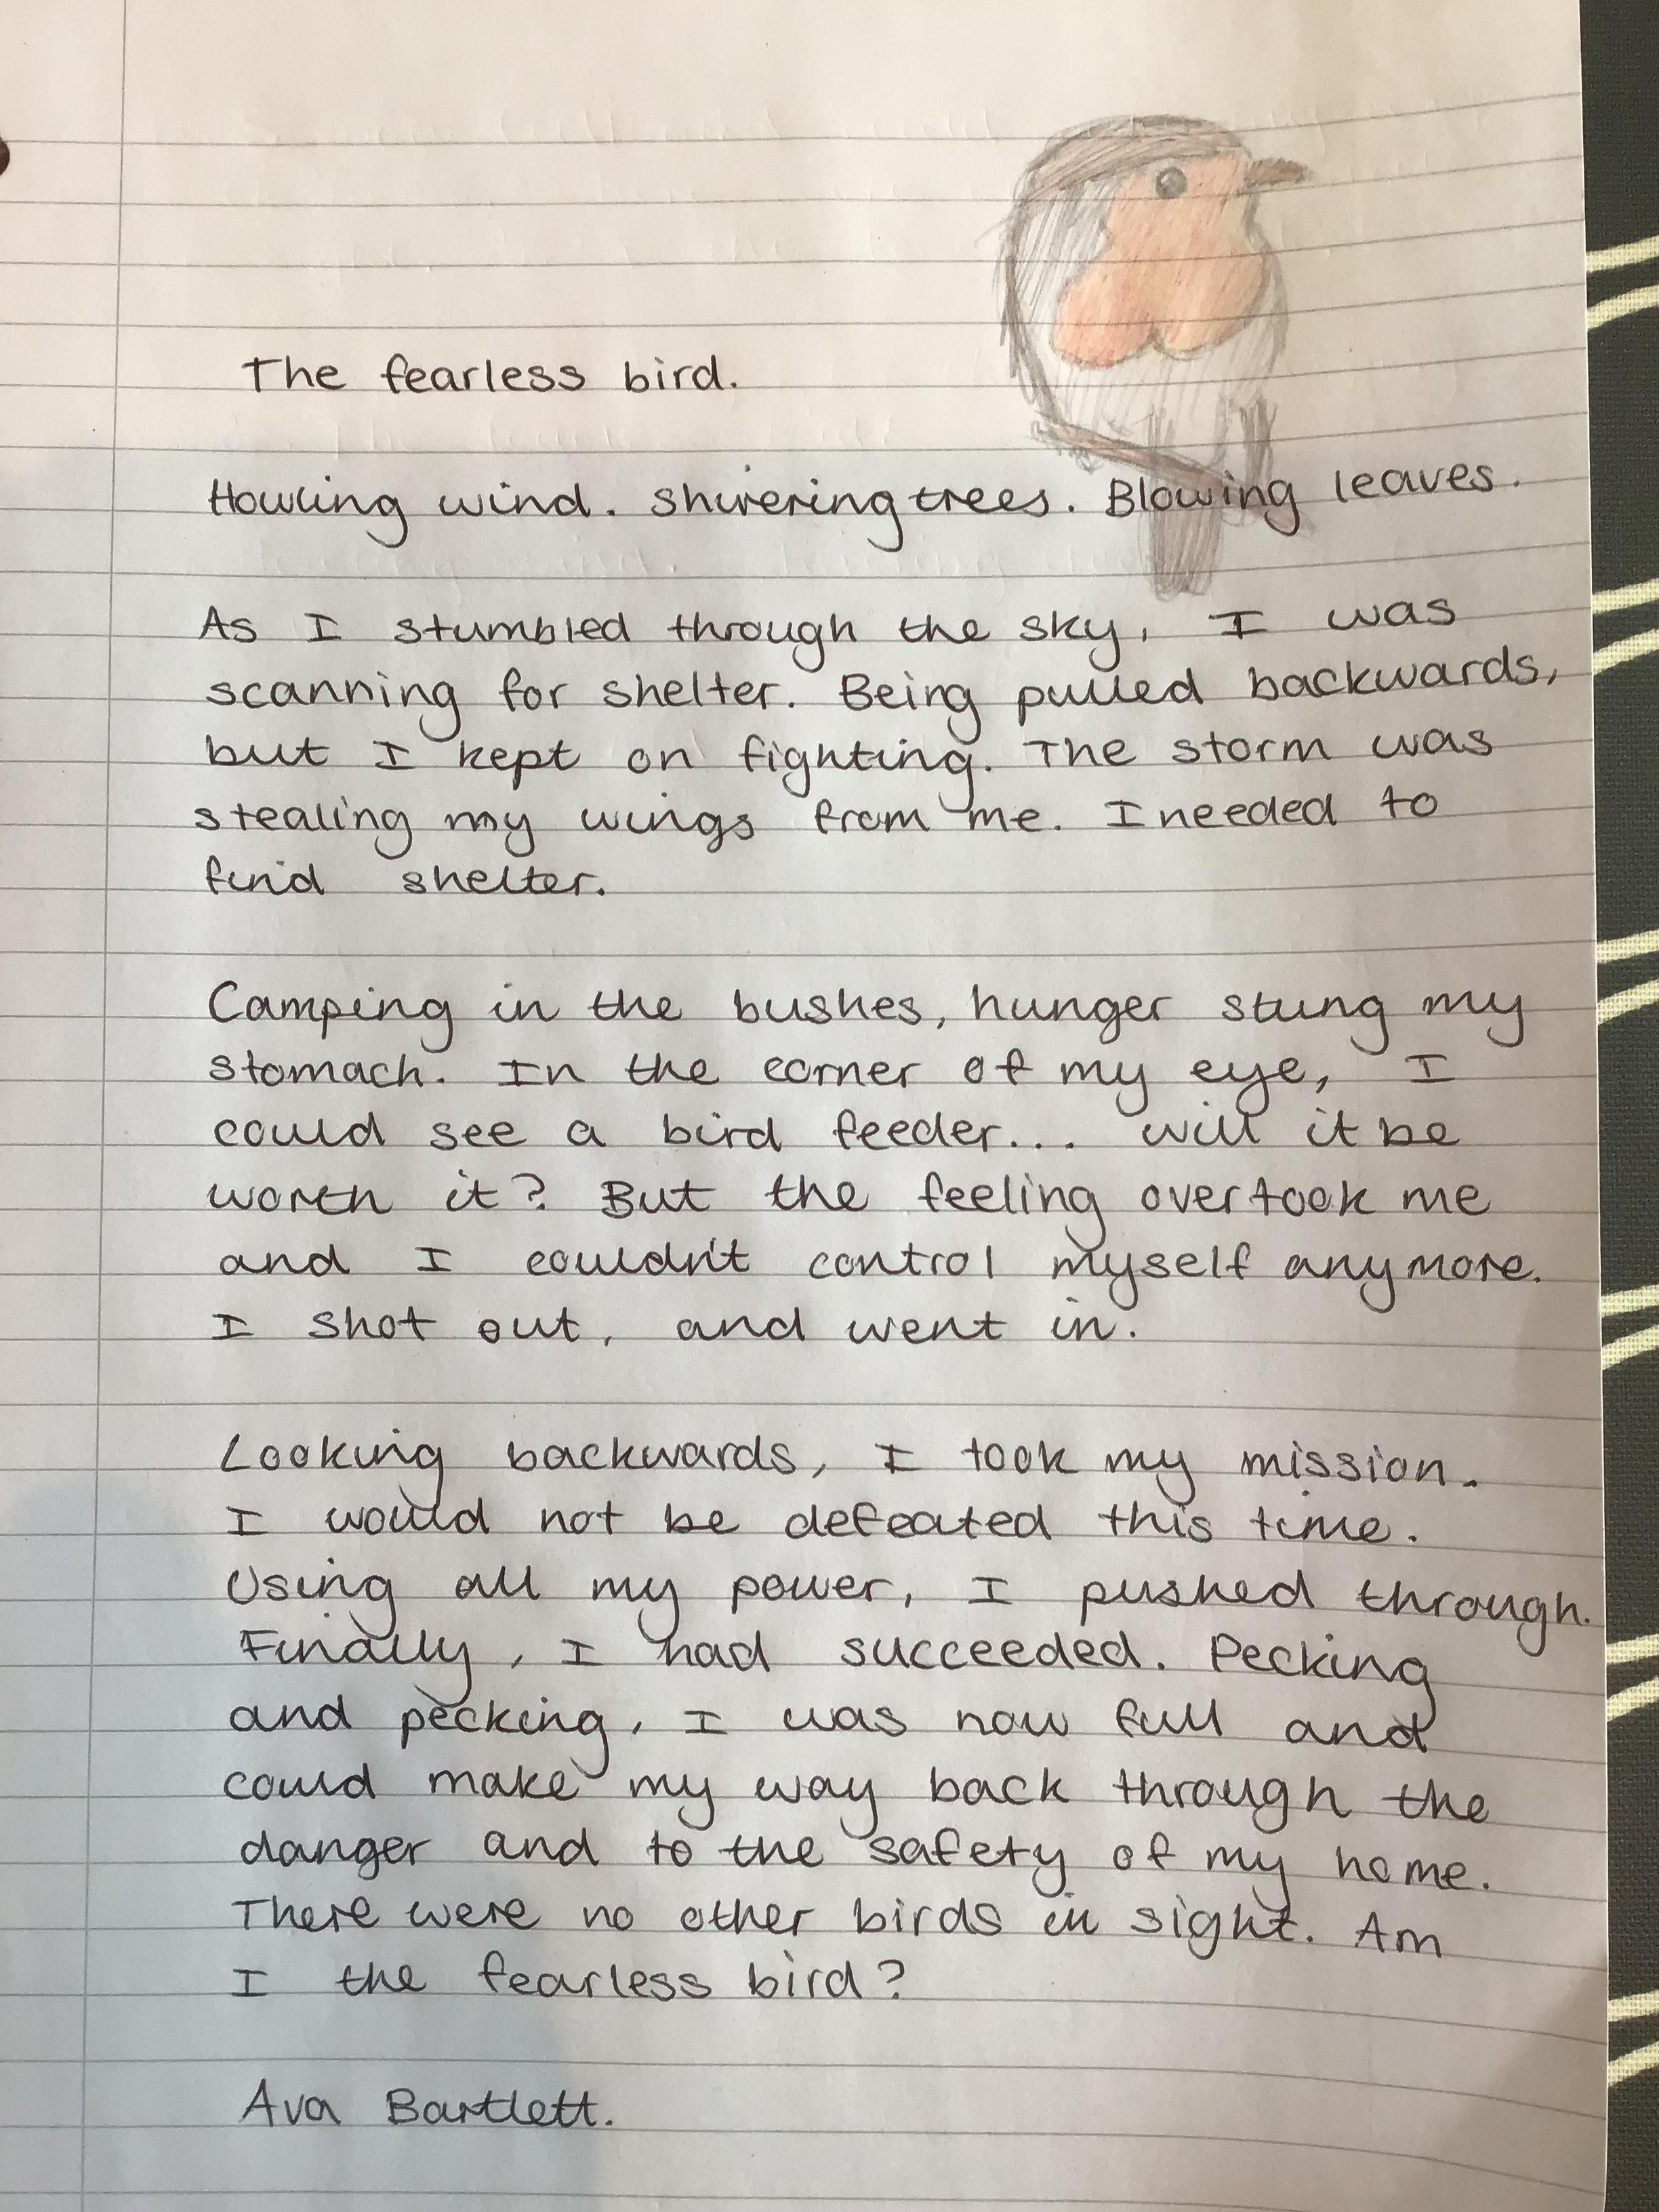 The fearless bird.
Howling wind. Shivering trees. Blowing leaves.
As I stumbled through the sky, I was
scanning for shelter. Being pulled backwards,
but I kept on fighting. The storm was
stealing my wings from me. I needed to
find shelter.
Camping in the bushes, hunger stung my
stomach. In the corner of my eye, I
could see a bird feeder... will it be
worth it? But the feeling overtook me
and I couldn't control myself anymore.
I shot out, and went in.
Looking backwards, I took my mission.
I would not be defeated this time.
Using all my power, I pushed through.
Finally, I had succeeded. Pecking
and pecking, I was now full and
could make my way back through the
danger and to the safety of my home.
There were no other birds in sight. Am
I the fearless bird?
Ava Bartlett.